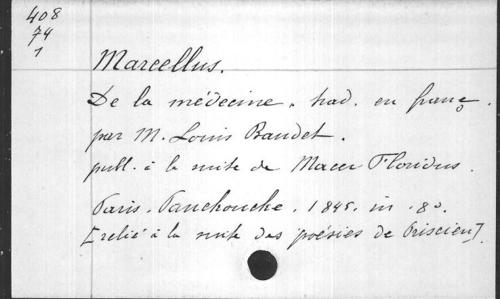 408
74
1
Marcellus.
De la médecine, trad. en franç.
par M. Louis Baudet.
publ. à la suite de Macer Floridus.
Paris. Panckoucke. 1845. in -8o.
[relié à la suite des poésies de Priscien].